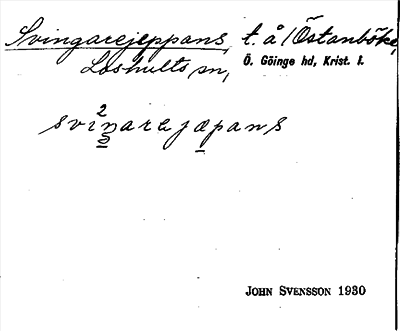 Svingarejeppans, t. å / Östanböke,
Loshults sn, Ö. Göinge hd, Krist. l.
2
svinarejæpans
JOHN SVENSSON 1930